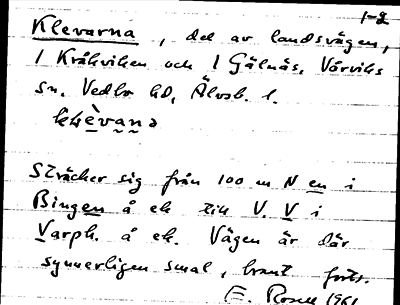 1-2
Klevarna, del av landsvägen,
1 Kråkviken och 1 Gälnäs, Vårviks
sn, Vedbo hd, Älvsb. l.
Sträcker sig från 100 m N en i
Bingen å ek till V. V i
Varph. å ek. Vägen är där
synnerligen smal, brant forts.
E. Rosell 1961